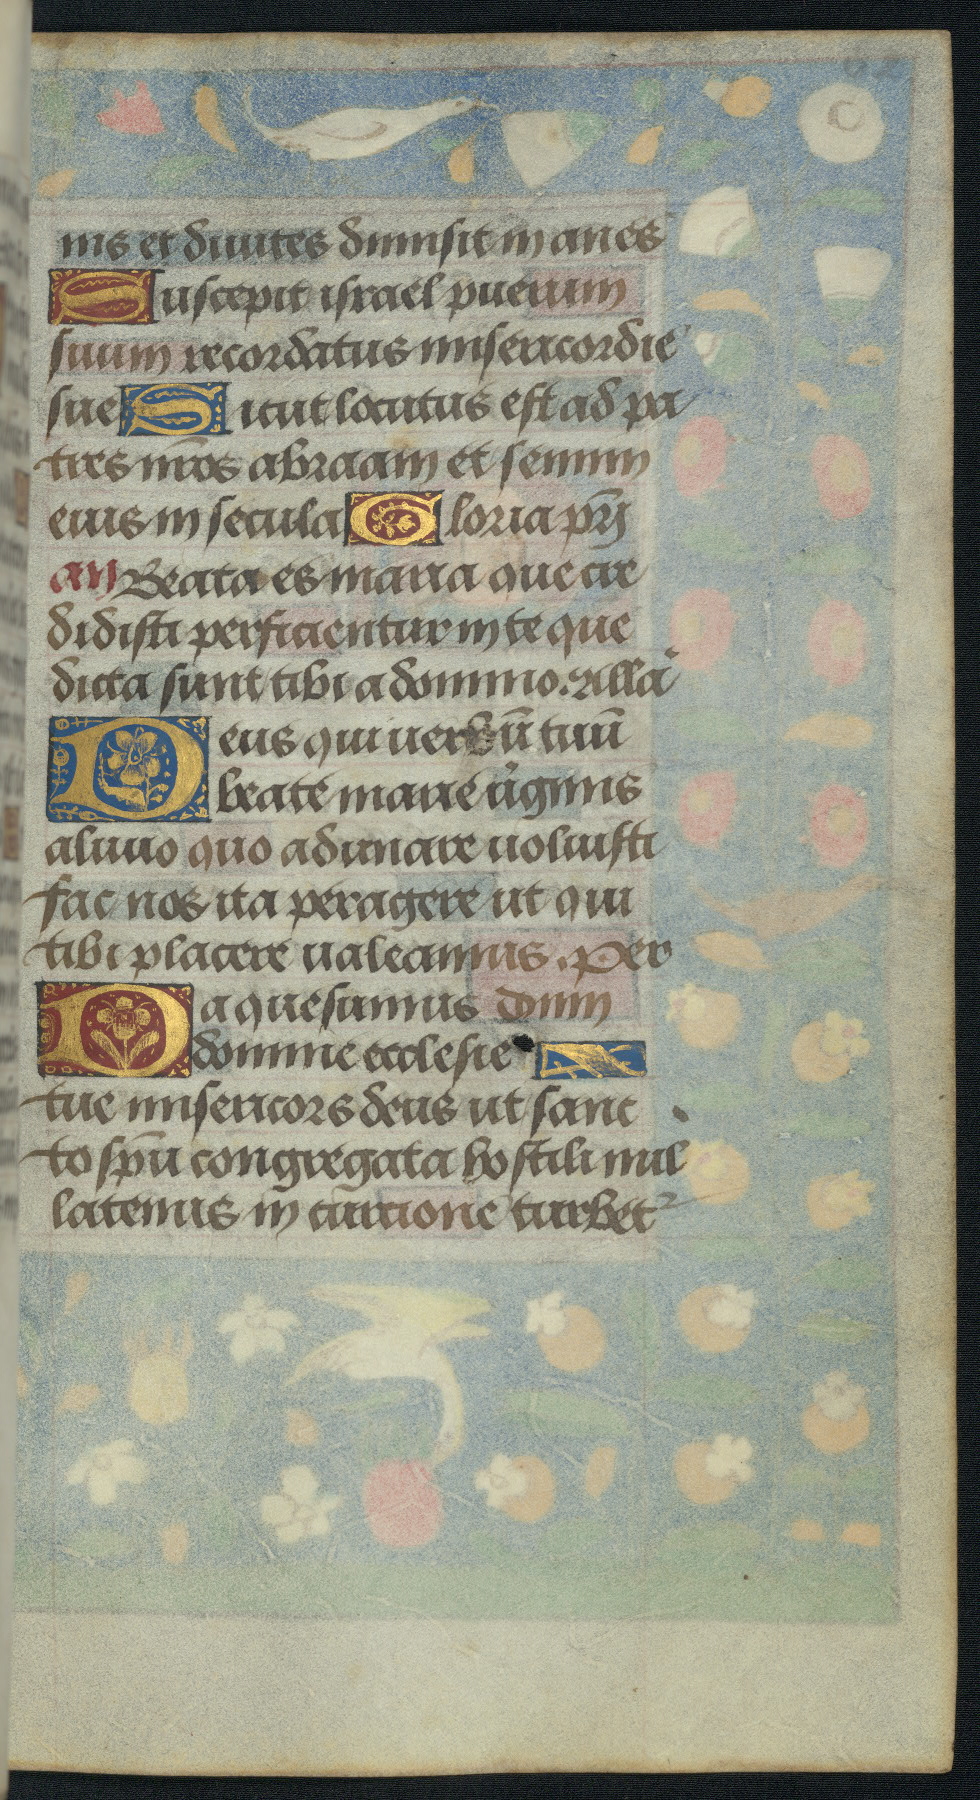 nis et diuites dimisit inanes
Suscepit israel puerum
suum recordatus misericordie
sue Sicut locutus est ad pa
tres nr̄os abraam et semini
eius in secula Gloria pr̄i
an Beata es maria que cre
didisti perficientur in te que
dicta sunt tibi a domino. Alla
Deus qui uerbū tuū
beate marie u̇ginis
aluuo quo adunare uoluisti
fac nos ita peragere ut qui
tibi placere ualeamus. Per
Da quesumus om̄i
domine ecclesie
tue misericors deus ut sanc
to sp̄u congregata hostili nul
latenus in cursione turbet᷑